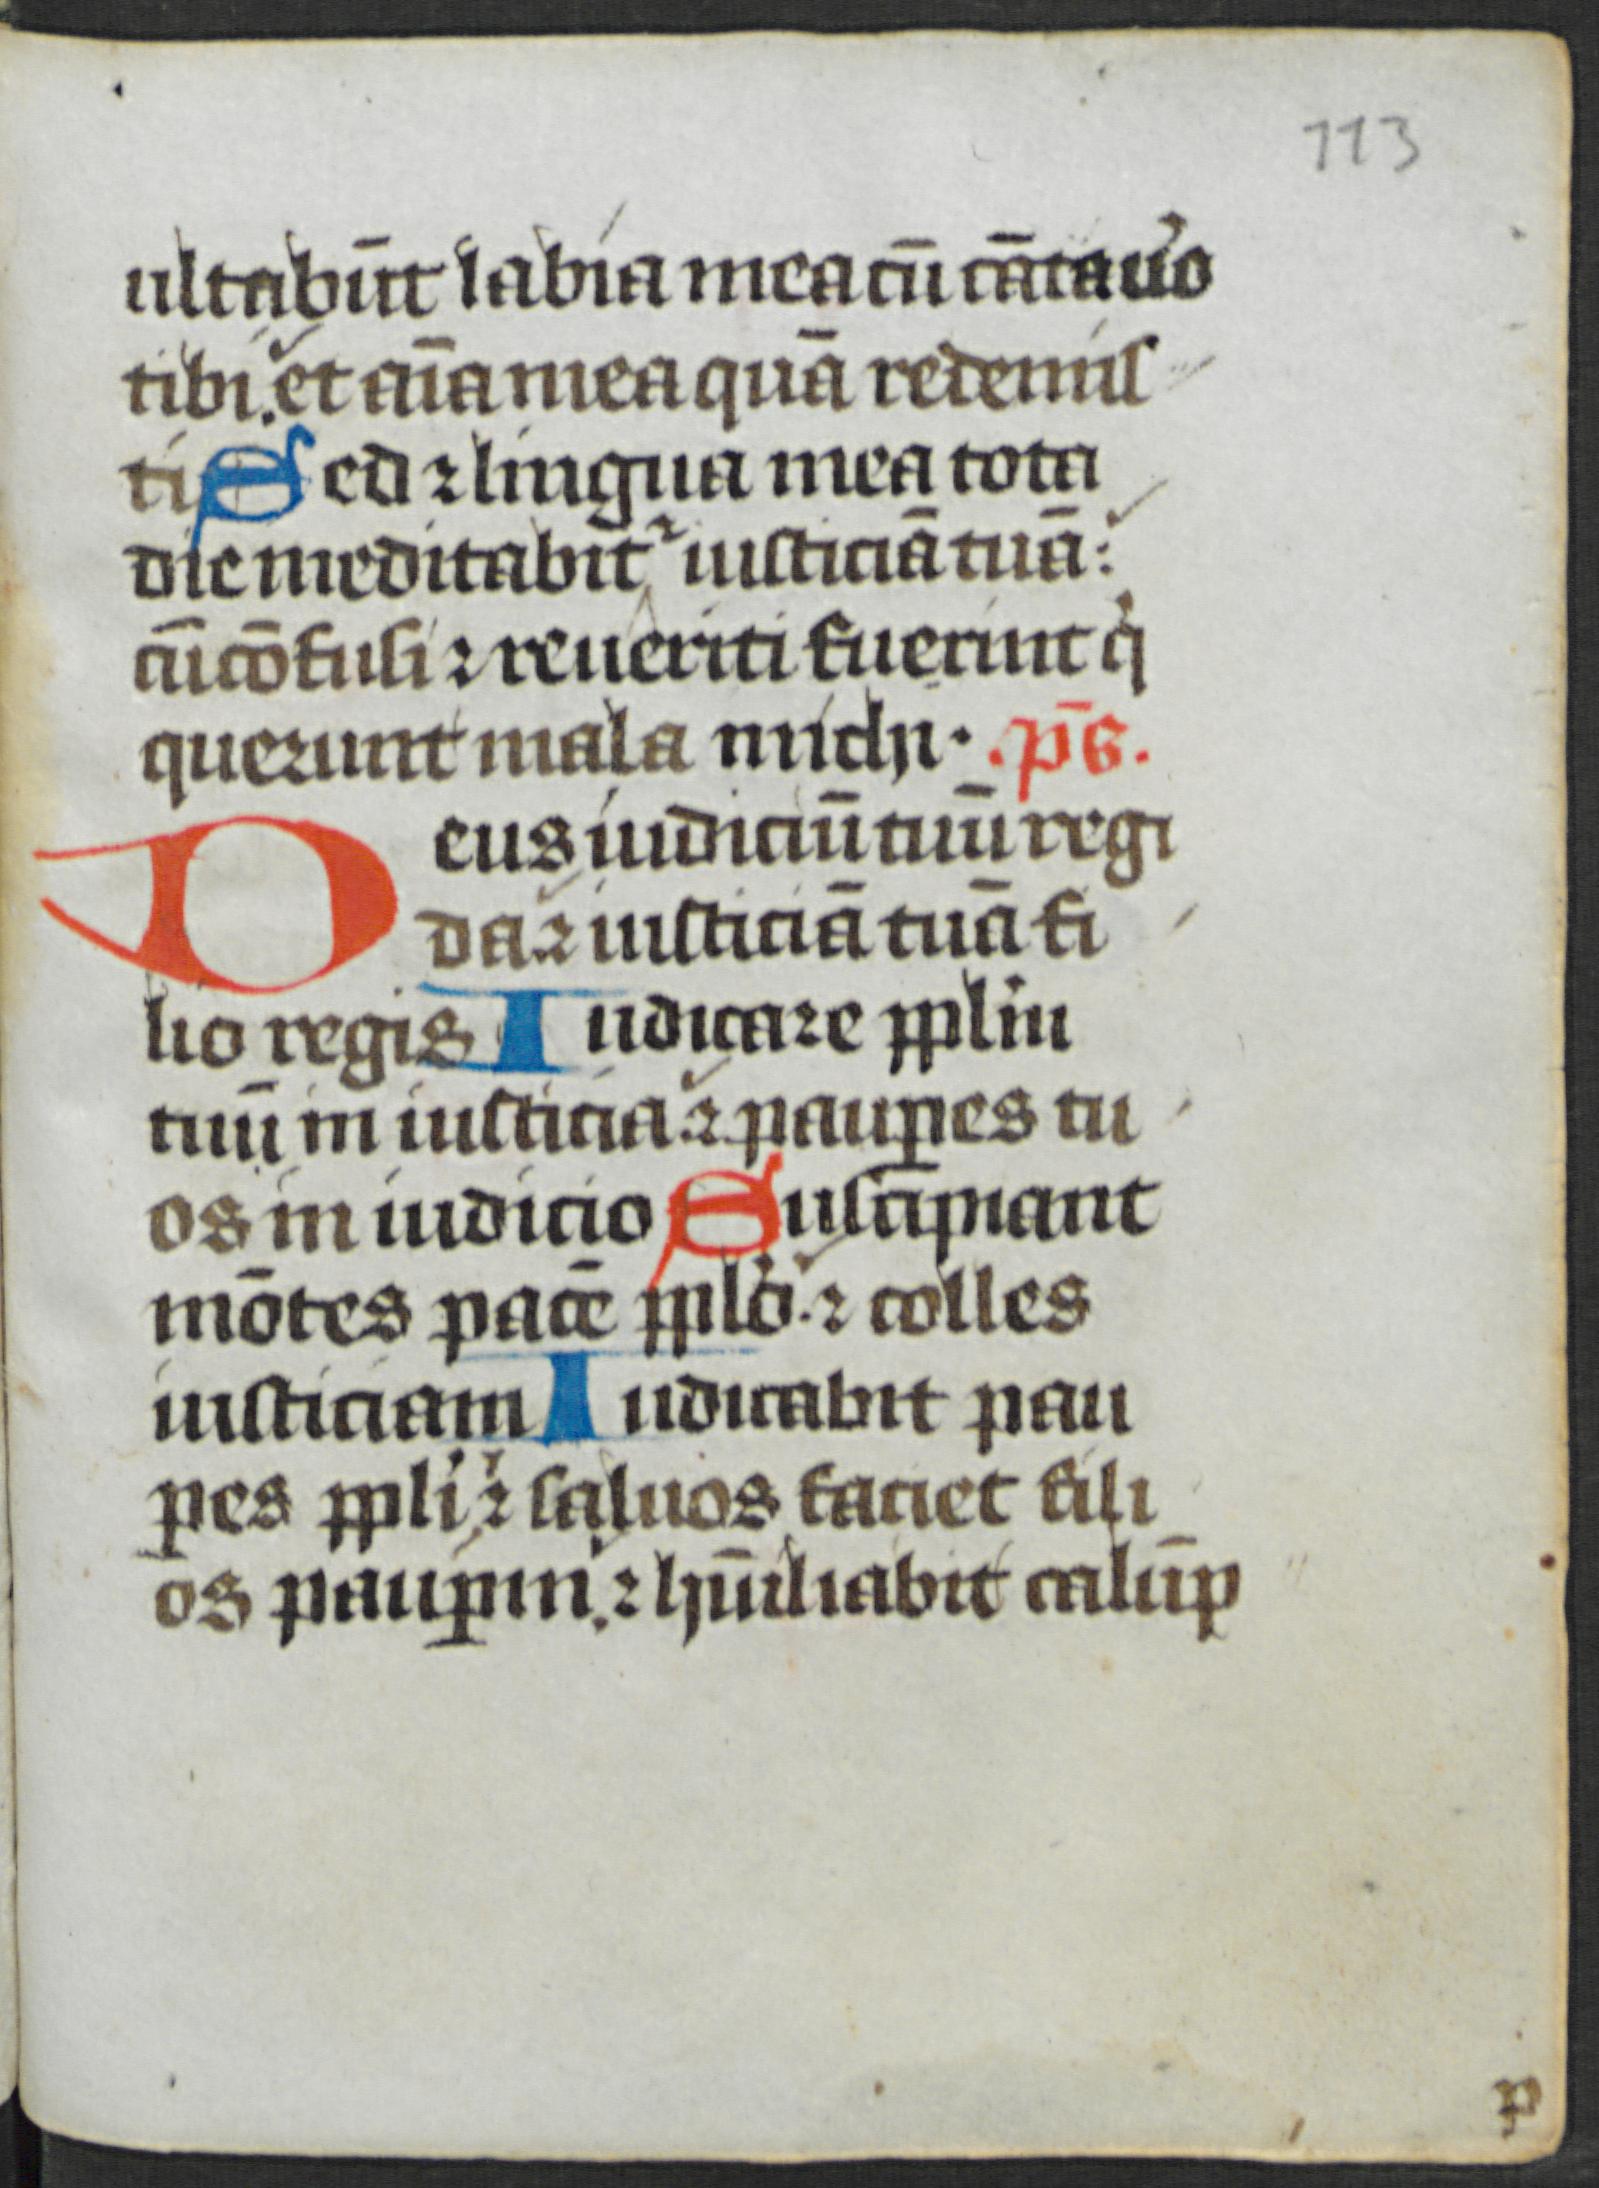 113
ultabūnt labia mea cū cātauo
tibi. et aīa mea quā redemis
ti Sed ⁊ lingua mea tota
die meditabit᷑ iusticiā tuā:
cū cōfusi ⁊ reueriti fuerint qi
querunt mala michi. .ps̄.
Deus iudiciū tuū regi
da. ⁊ iusticiā tuā fi
lio regis Iudicare pplm
tuū in iusticia. ⁊ pauꝑes tu
os in iudicio Suscipiant
mōtes pacē pplo. ⁊ colles
iusticiam Iudicabit pau
ꝑes ppli ⁊ saluos faciet fili
os pauꝑum. ⁊ hūiliabit calūp
p